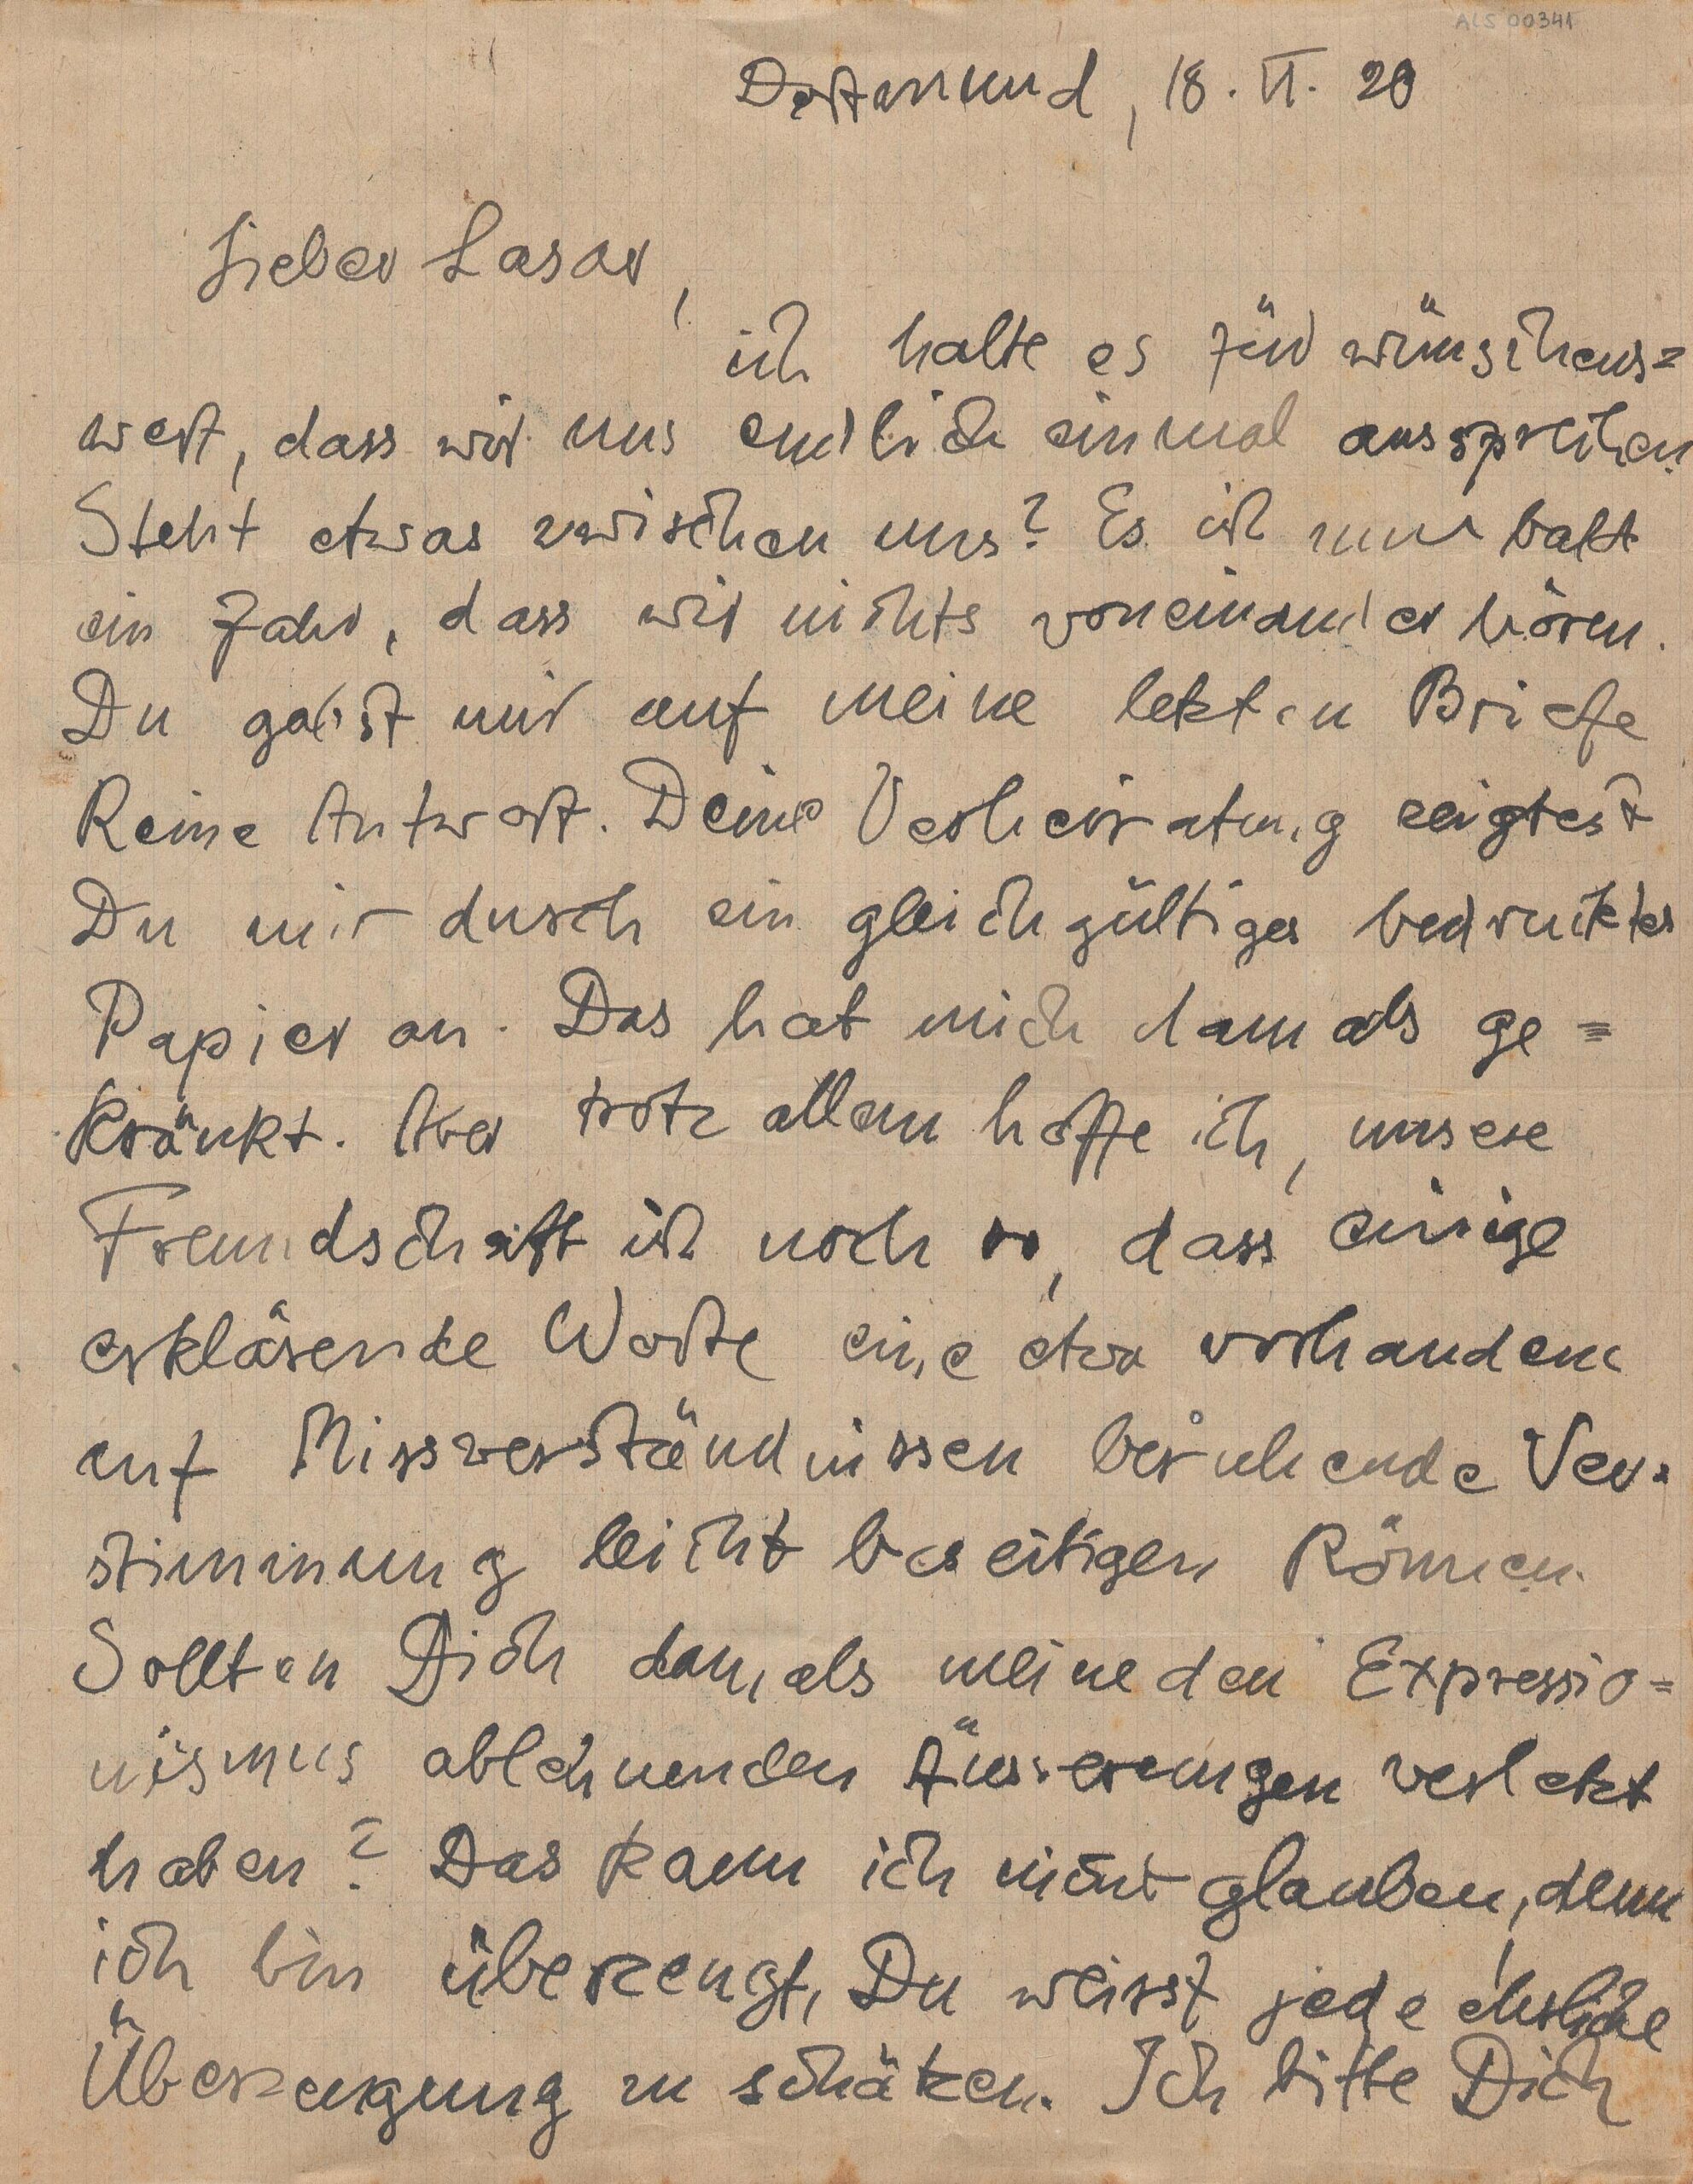 ALS 00341
Dortmund, 18. VI. 20
Lieber Lasar,
ich halte es für wünschens=
wert, dass wir uns endlich einmal aussprechen.
Steht etwas zwischen uns? Es ist nun bald
ein Jahr, dass wir nichts voneinander hören.
Du gabst mir auf meine letzten Briefe
keine Antwort. Deine Verheiratung zeigtest
Du mir durch ein gleichgültiges bedrucktes
Papier an. Das hat mich damals ge=
kränkt. Aber trotz allem hoffe ich, unsere
Freundschaft ist noch so, dass einige
erklärende Worte eine etwa vorhandene
auf Missverständnissen beruhende Ver=
stimmung leicht beseitigen können.
Sollten Dich damals meine den Expressio=
nismus ablehnenden Äusserungen verletzt
haben? Das kann ich nicht glauben, denn
ich bin überzeugt, Du weisst jede ehrliche
Überzeugung zu schätzen. Ich bitte Dich